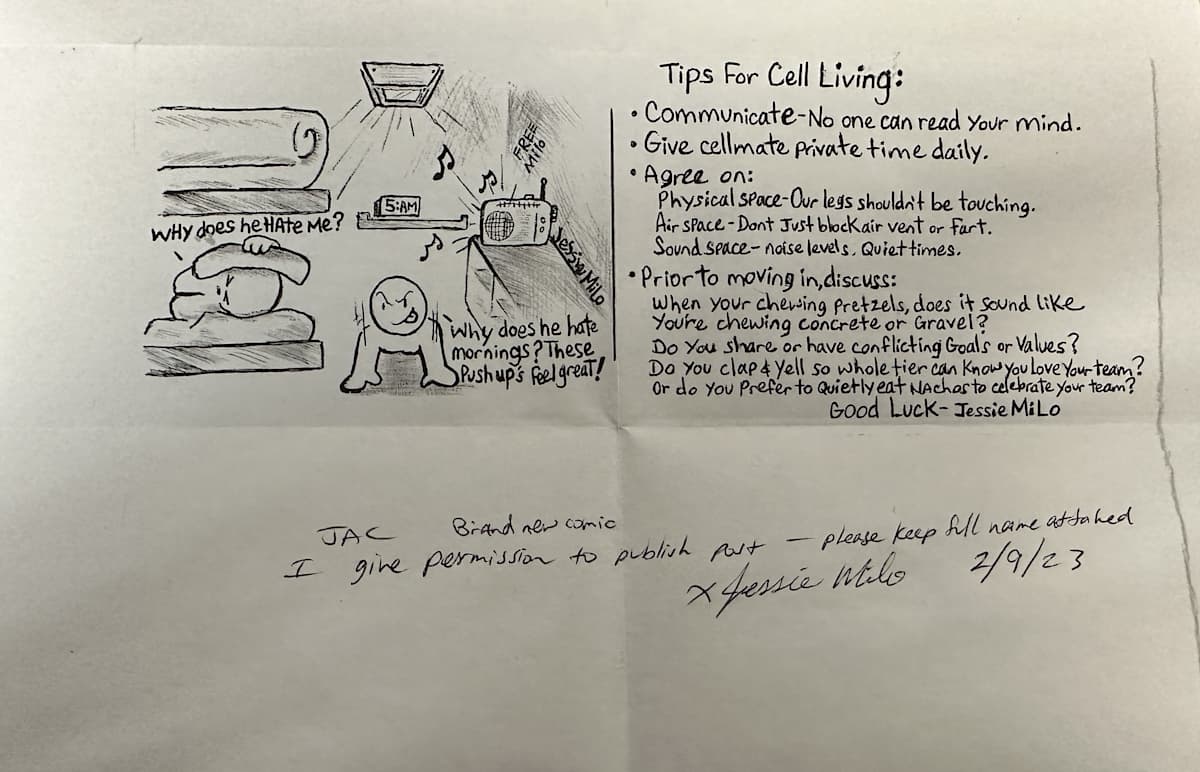 WHY does he HAte Me?
5:AM
FREE
Milo
Jessie Milo
Why does he hate
mornings? These
Pushup's Feel great!
Tips For Cell Living:
• Communicate-No one can read your mind.
• Give cellmate private time daily.
• Agree on:
Physical space-Our legs shouldn't be touching.
Air space-Dont Just block air vent or fart.
Sound space-noise levels. Quiet times.
• Prior to moving in, discuss:
When your chewing pretzels, does it sound like
You're chewing concrete or Gravel?
Do You share or have conflicting Goals or Values?
Do you clap & Yell so whole tier can know you Love Your team?
Or do you Prefer to Quietly eat NAchos to celebrate your team?
Good Luck- Jessie MiLo
JAC Brand new comic
I give permission to publish Post - please keep full name attached
x Jessie Milo 2/9/23